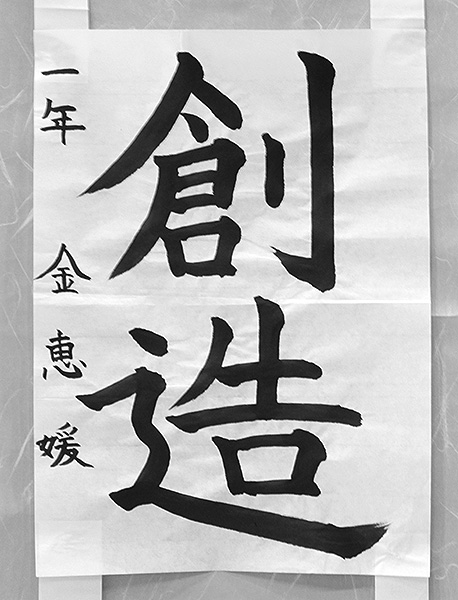 創造
一年 金恵媛